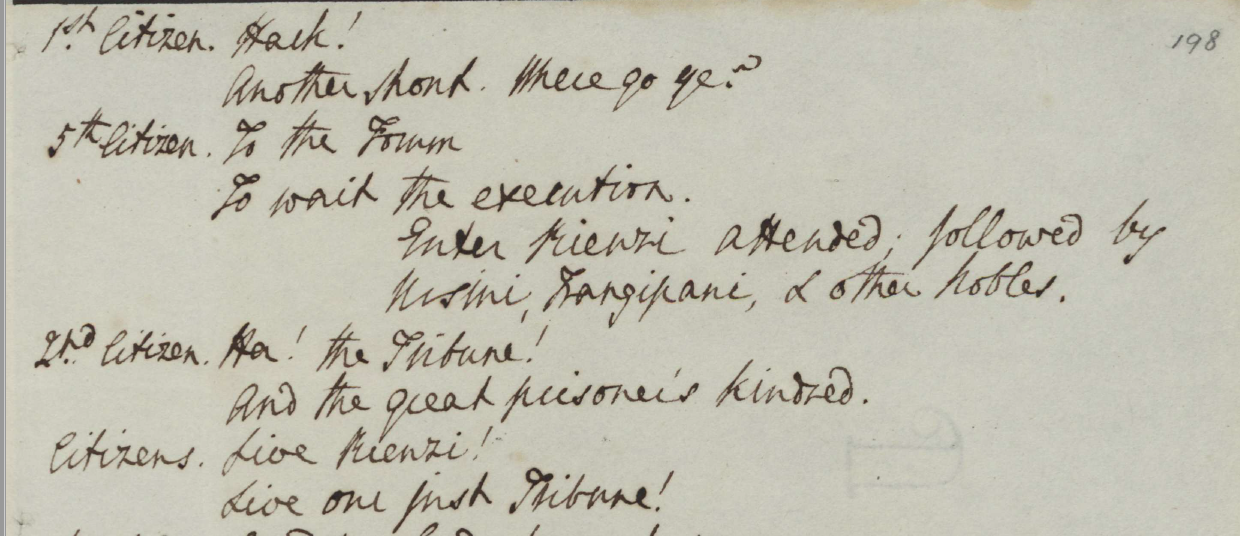 198
1st. Citizen. Hark!
Another shout. Where go ye?
5th Citizen. To the Forum
To wait the execution.
Enter Rienzi attended; followed by
Ursini, Frangipani, & other Nobles.
2nd. Citizen. Ha! the Tribune!
And the great prisoner's kindred.
Citizens. Live Rienzi!
Live our just Tribune!